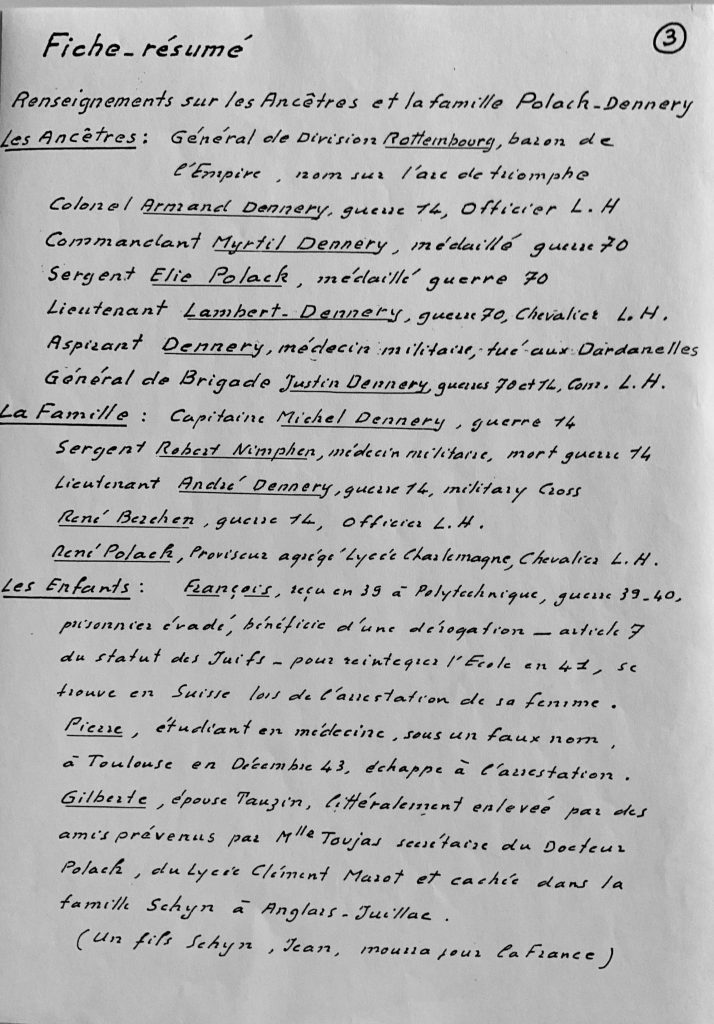 3
Fiche-résumé
Renseignements sur les Ancêtres et la famille Polack-Dennery
Les Ancêtres : Général de Division Rottembourg, baron de
l'Empire, nom sur l'arc de triomphe
Colonel Armand Dennery, guerre 14, Officier L.H
Commandant Myrtil Dennery, médaillé guerre 70
Sergent Elie Polack, médaillé guerre 70
Lieutenant Lambert-Dennery, guerre 70, Chevalier L.H.
Aspirant Dennery, médecin militaire, tué aux Dardanelles
Général de Brigade Justin Dennery, guerres 70 et 14, Com. L.H.
La Famille : Capitaine Michel Dennery, guerre 14
Sergent Robert Nimphen, médecin militaire, mort guerre 14
Lieutenant André Dennery, guerre 14, military Cross
René Berehen, guerre 14, Officier L.H.
René Polack, Proviseur agrégé Lycée Charlemagne, Chevalier L.H.
Les Enfants : François, reçu en 39 à Polytechnique, guerre 39-40,
prisonnier évadé, bénéficie d'une dérogation - article 7
du statut des Juifs - pour reintegrer l'Ecole en 41, se
trouve en Suisse lors de l'arrestation de sa femme.
Pierre, étudiant en médecine, sous un faux nom,
à Toulouse en Décembre 43, échappe à l'arrestation.
Gilberte, épouse Tauzin, littéralement enleveé par des
amis prévenus par Mlle Toujas secrétaire du Docteur
Polack, du Lycée Clément Marot et cachée dans la
famille Schyn à Anglars-Juillac.
(Un fils Schyn, Jean, mourra pour la France)